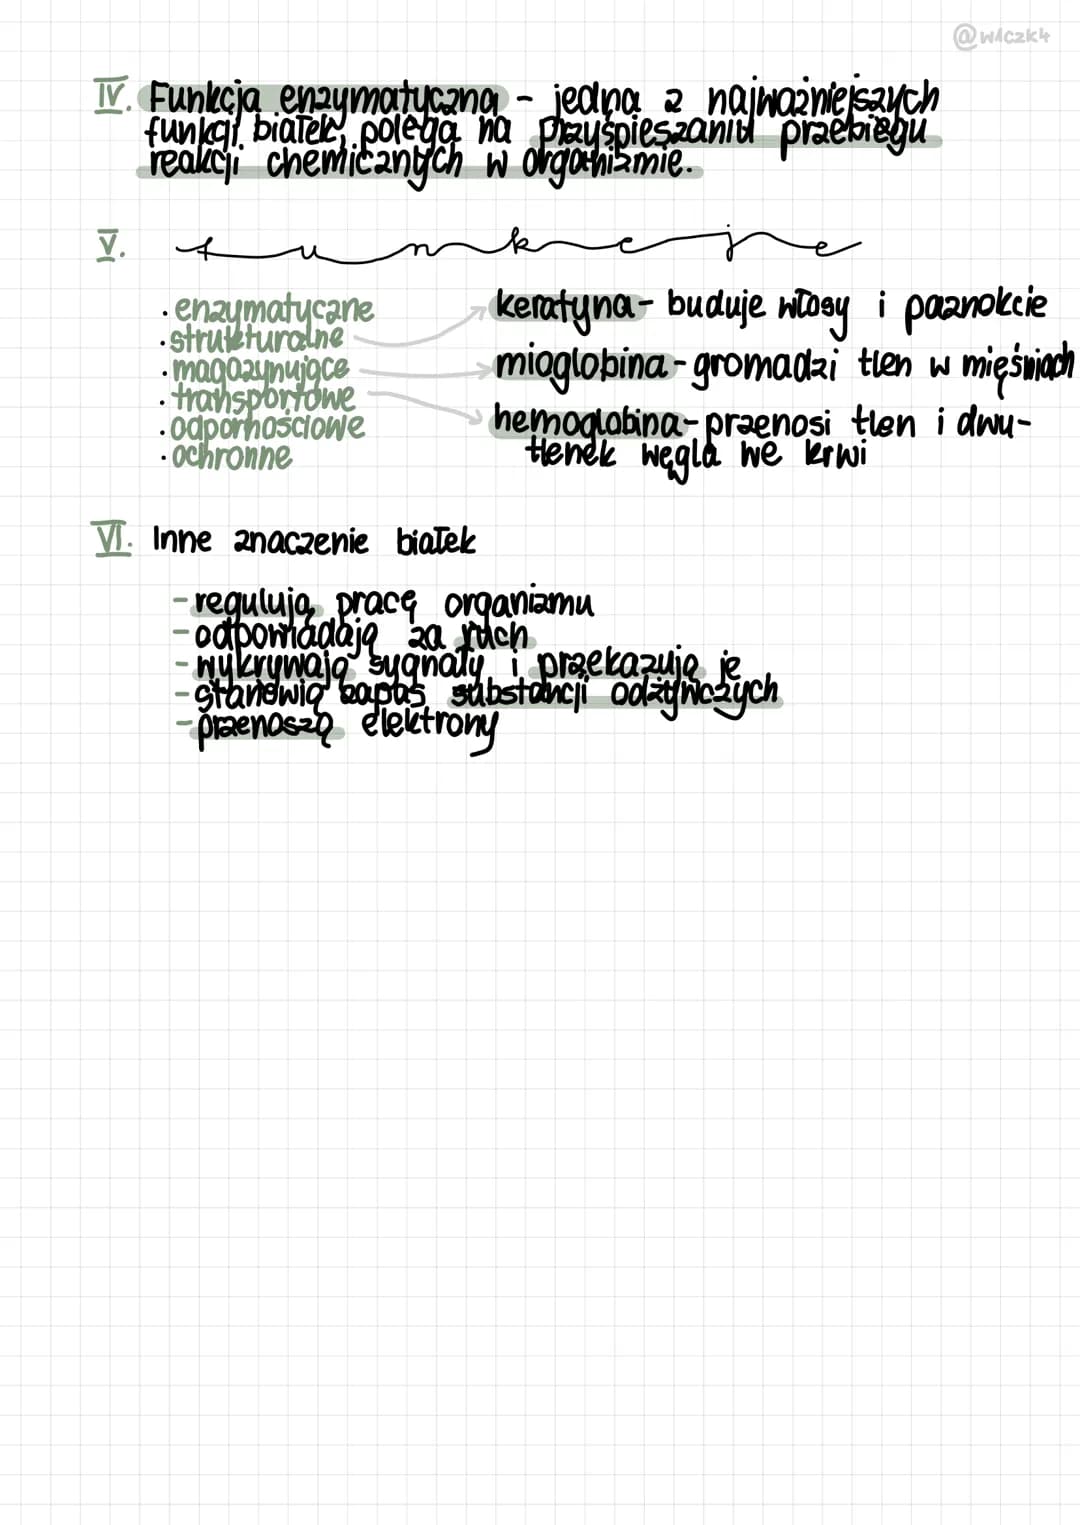 @w1czk4
IV. Funkcja enzymatyczna - jedna z najważniejszych
funkcji białek, polega na przyśpieszaniu przebiegu
reakcji chemicznych w organizmie.
V. funkcje
· enzymatyczne
· strukturalne
· magazynujące
· transportowe
· odpornościowe
· ochronne
keratyna - buduje włosy i paznokcie
mioglobina - gromadzi tlen w mięśniach
hemoglobina - przenosi tlen i dwu-
tlenek węgla we krwi
VI. Inne znaczenie białek
- regulują pracę organizmu
- odpowiadają za ruch
- wykrywają sygnały i przekazują je
- stanowią zapas substancji odżywczych
- przenoszą elektrony